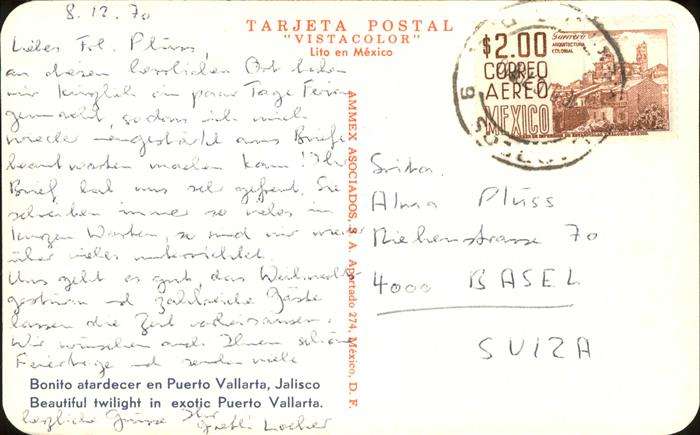 8.12.70
Liebes Frl. Plüss,
an diesen herrlichen Ort haben
wir kürzlich ein paar Tage Ferien
gemacht, so dass ich mich
wieder neugestärkt ans Briefe
beantworten machen kann! Ihr
Brief hat uns sehr gefreut. Sie
schreiben immer so vieles in
kurzen Worten, so sind wir wieder
über vieles unterrichtet.
Uns geht es gut das Weihnachts-
gestürm und zahlreiche Gäste
lassen die Zeit vorbeisausen.
Wir wünschen auch Ihnen schöne
Feiertage und senden viele
herzliche Grüsse Ihre
Gretli Locher
TARJETA POSTAL
"VISTACOLOR"
Lito en México
AMMEX ASOCIADOS, S. A. Apartado 274, México, D. F.
$2.00
CORREO
AEREO
MEXICO
Guerrero
ARQUITECTURA
COLONIAL
Srita.
Alma Plüss
Riehenstrasse 70
4000 BASEL
SUIZA
Bonito atardecer en Puerto Vallarta, Jalisco
Beautiful twilight in exotic Puerto Vallarta.